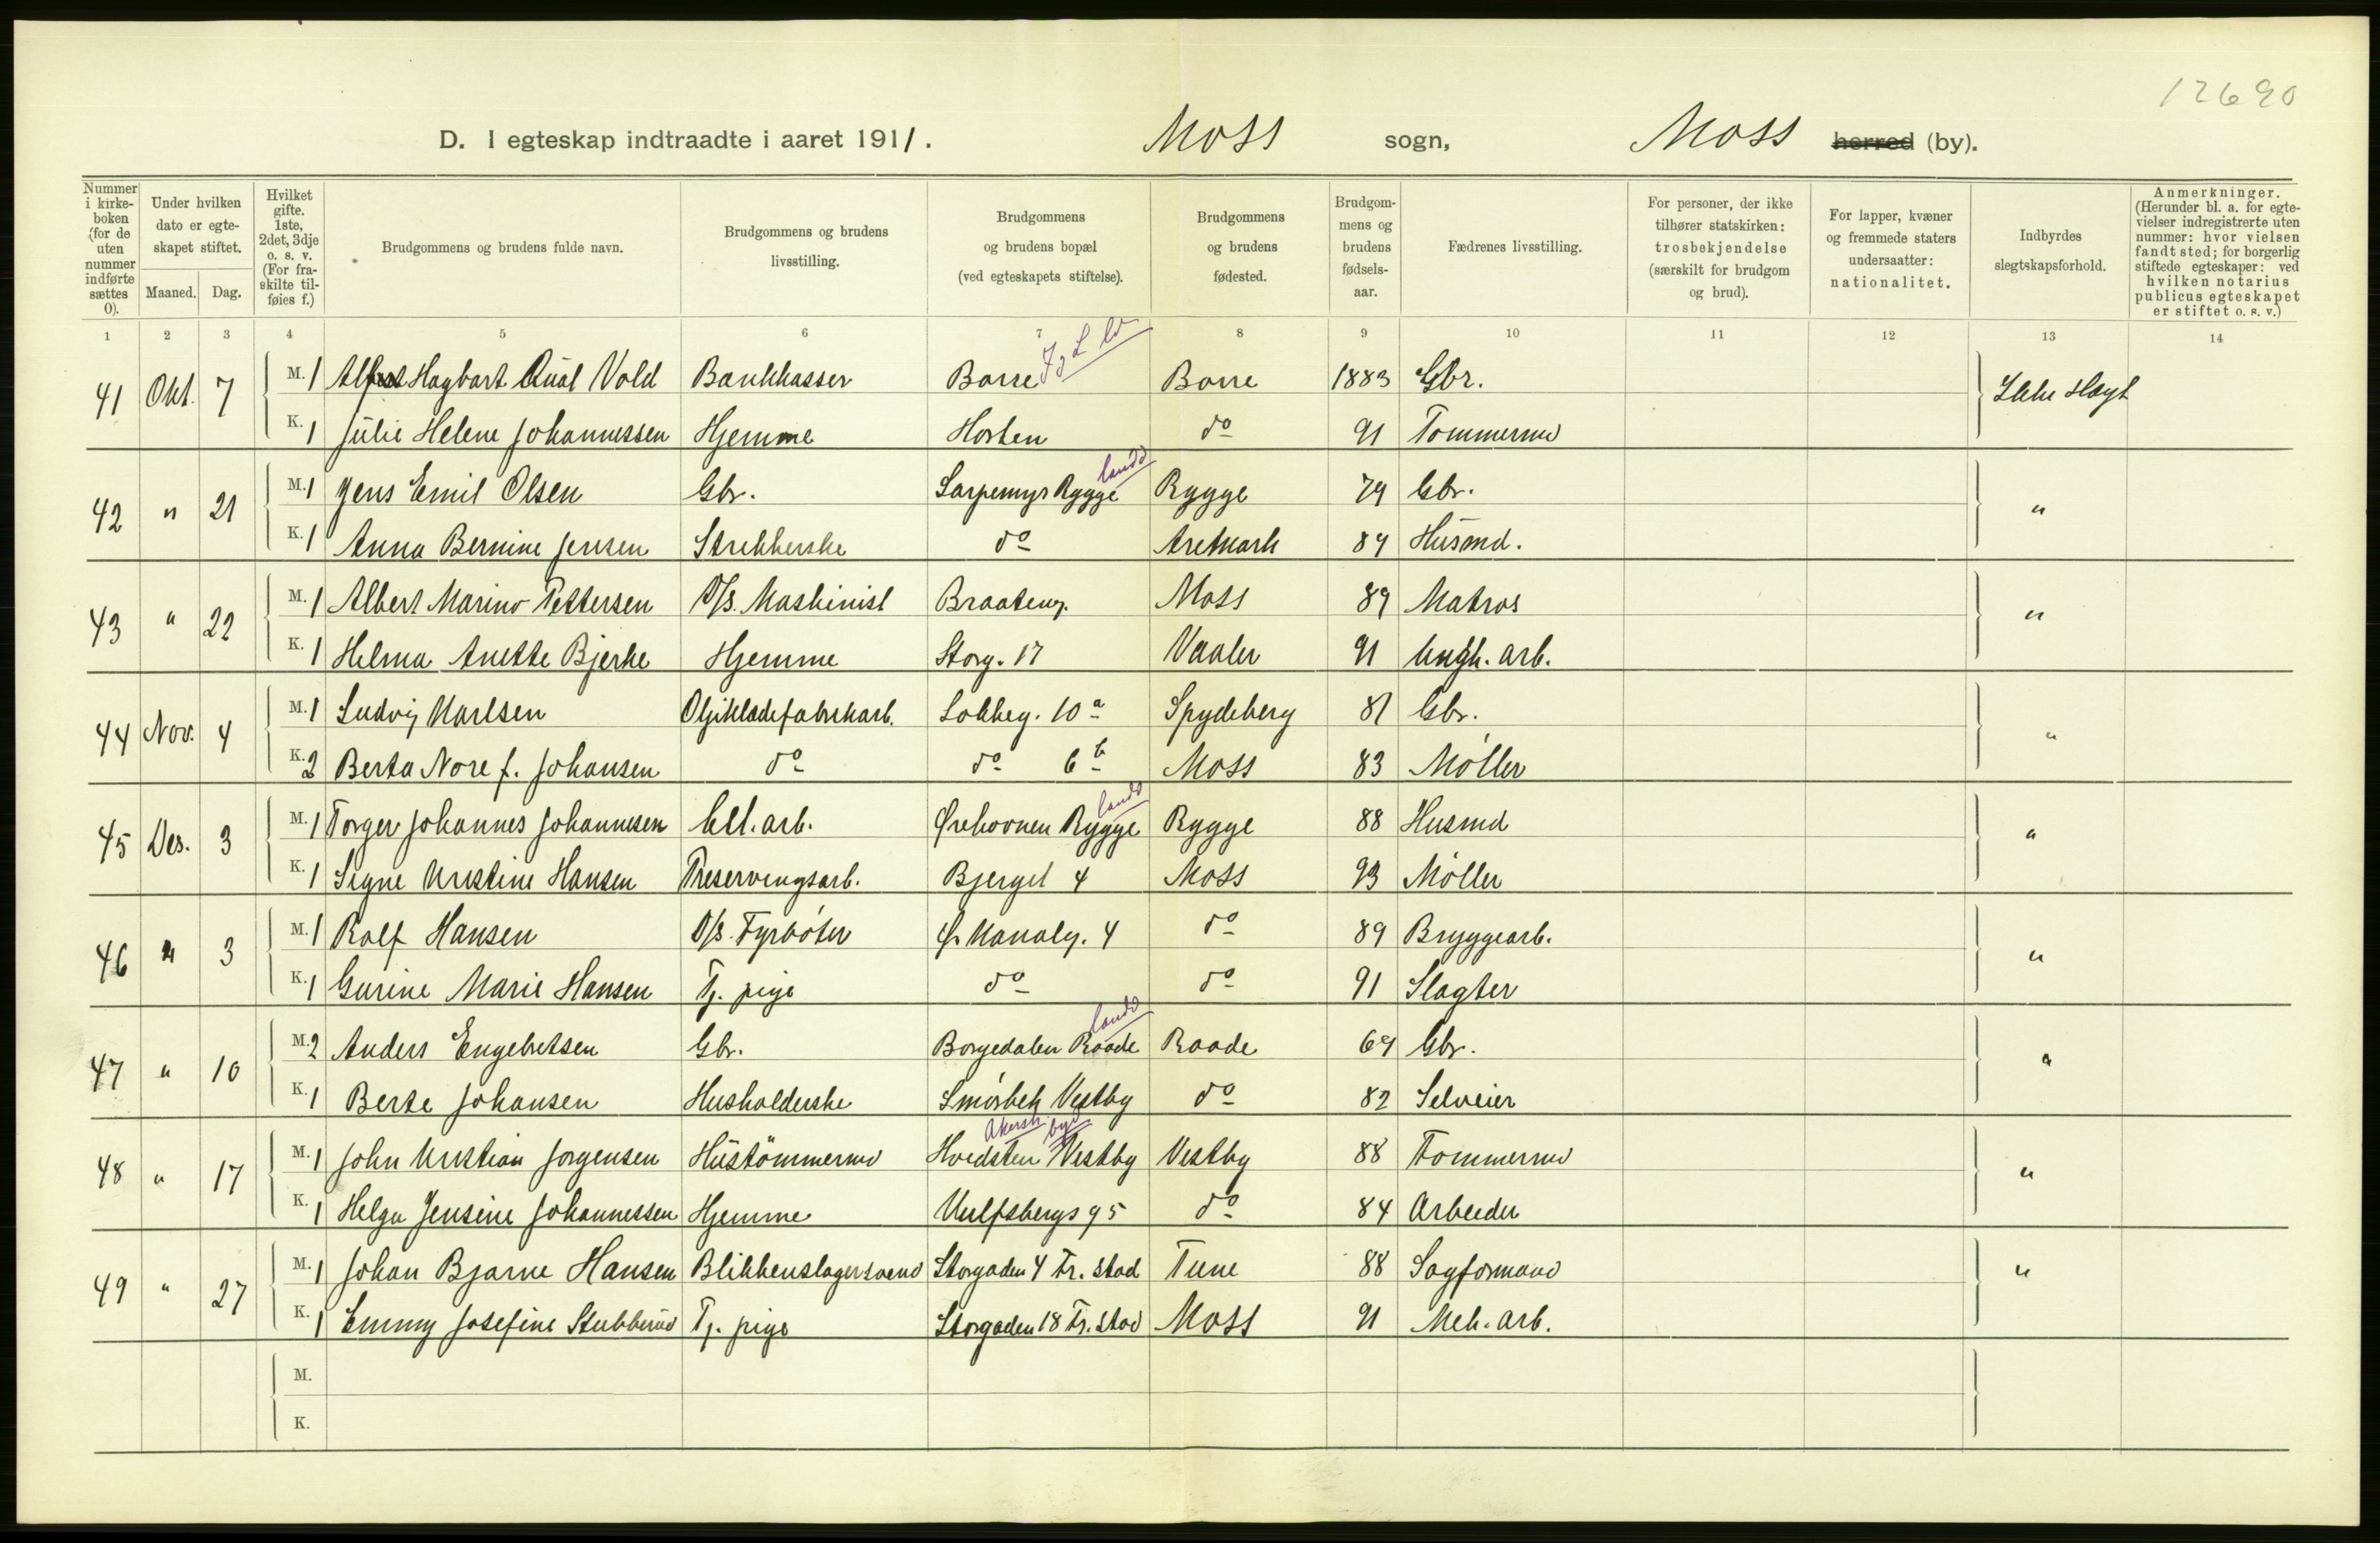 12690
D. I egteskap indtraadte i aaret 1911. Moss sogn, Moss herred (by).
Nummer i kirke-boken (for de uten nummer indførte sættes 0).
Under hvilken dato er egte-skapet stiftet.
Maaned. Dag.
Hvilket gifte. 1ste, 2det, 3dje o. s. v. (For fra-skilte til-føies f.)
Brudgommens og brudens fulde navn.
Brudgommens og brudens livsstilling.
Brudgommens og brudens bopæl (ved egteskapets stiftelse).
Brudgommens og brudens fødested.
Brudgom-mens og brudens fødsels-aar.
Fædrenes livsstilling.
For personer, der ikke tilhører statskirken: trosbekjendelse (særskilt for brudgom og brud).
For lapper, kvæner og fremmede staters undersaatter: nationalitet.
Indbyrdes slegtskapsforhold.
Anmerkninger. (Herunder bl. a. for egte-vielser indregistrerte uten nummer: hvor vielsen fandt sted; for borgerlig stiftede egteskaper: ved hvilken notarius publicus egteskapet er stiftet o. s. v.)
1 2 3 4 5 6 7 8 9 10 11 12 13 14
41 Okt. 7 M. 1 Hagbart Vold Bankkasser Borre Borre 1883 Gbr. Ikke slegt
K. 1 Julie Helene Johannessen Hjemme Horten do 91 Tømmermd
42 " 21 M. 1 Jens Emil Olsen Gbr. Sarpemyr Rygge landd Rygge 79 Gbr. "
K. 1 Anna Bernine Jensen Strikkerske do Aremark 84 Husmd.
43 " 22 M. 1 Albert Marino Pettersen D/s. Maskinist Braateng. Moss 89 Matros "
K. 1 Helma Anette Bjerke Hjemme Storg. 17 Vaaler 91 arb.
44 Nov. 4 M. 1 Ludvig Karlsen Oljeklædefabrikarb. Løkkeg. 10 a Spydeberg 81 Gbr. "
K. 2 Berta Nore f. Johansen do do 6 b Moss 83 Møller
45 Des. 3 M. 1 Torger Johannes Johannesen Cell. arb. Ørehavnen Rygge landd Rygge 88 Husmd "
K. 1 Signe Kristine Hansen Preservingsarb. Bjerget 4 Moss 93 Møller
46 " 3 M. 1 Rolf Hansen D/s. Fyrbøter Ø. Kanalg. 4 do 89 Bryggearb. "
K. 1 Gurine Marie Hansen Tj. pige do do 91 Slagter
47 " 10 M. 2 Anders Engebretsen Gbr. Borgedalen Raade landd Raade 69 Gbr. "
K. 1 Berte Johansen Husholderske Smørbek Vestby do 82 Selveier
48 " 17 M. 1 John Kristian Jørgensen Hustømmermd Hvidsten Vestby Akersh byd Vestby 88 Tømmermd "
K. 1 Helga Jensine Johannessen Hjemme Kulfsbergs g 5 do 84 Arbeider
49 " 27 M. 1 Johan Bjarne Hansen Blikkenslagersvend Storgaden 4 Fr. stad Tune 88 Sagformand "
K. 1 Emmy Josefine Stubberud Tj. pige Storgaden 18 Fr. stad Moss 91 Mek. arb.
M.
K.